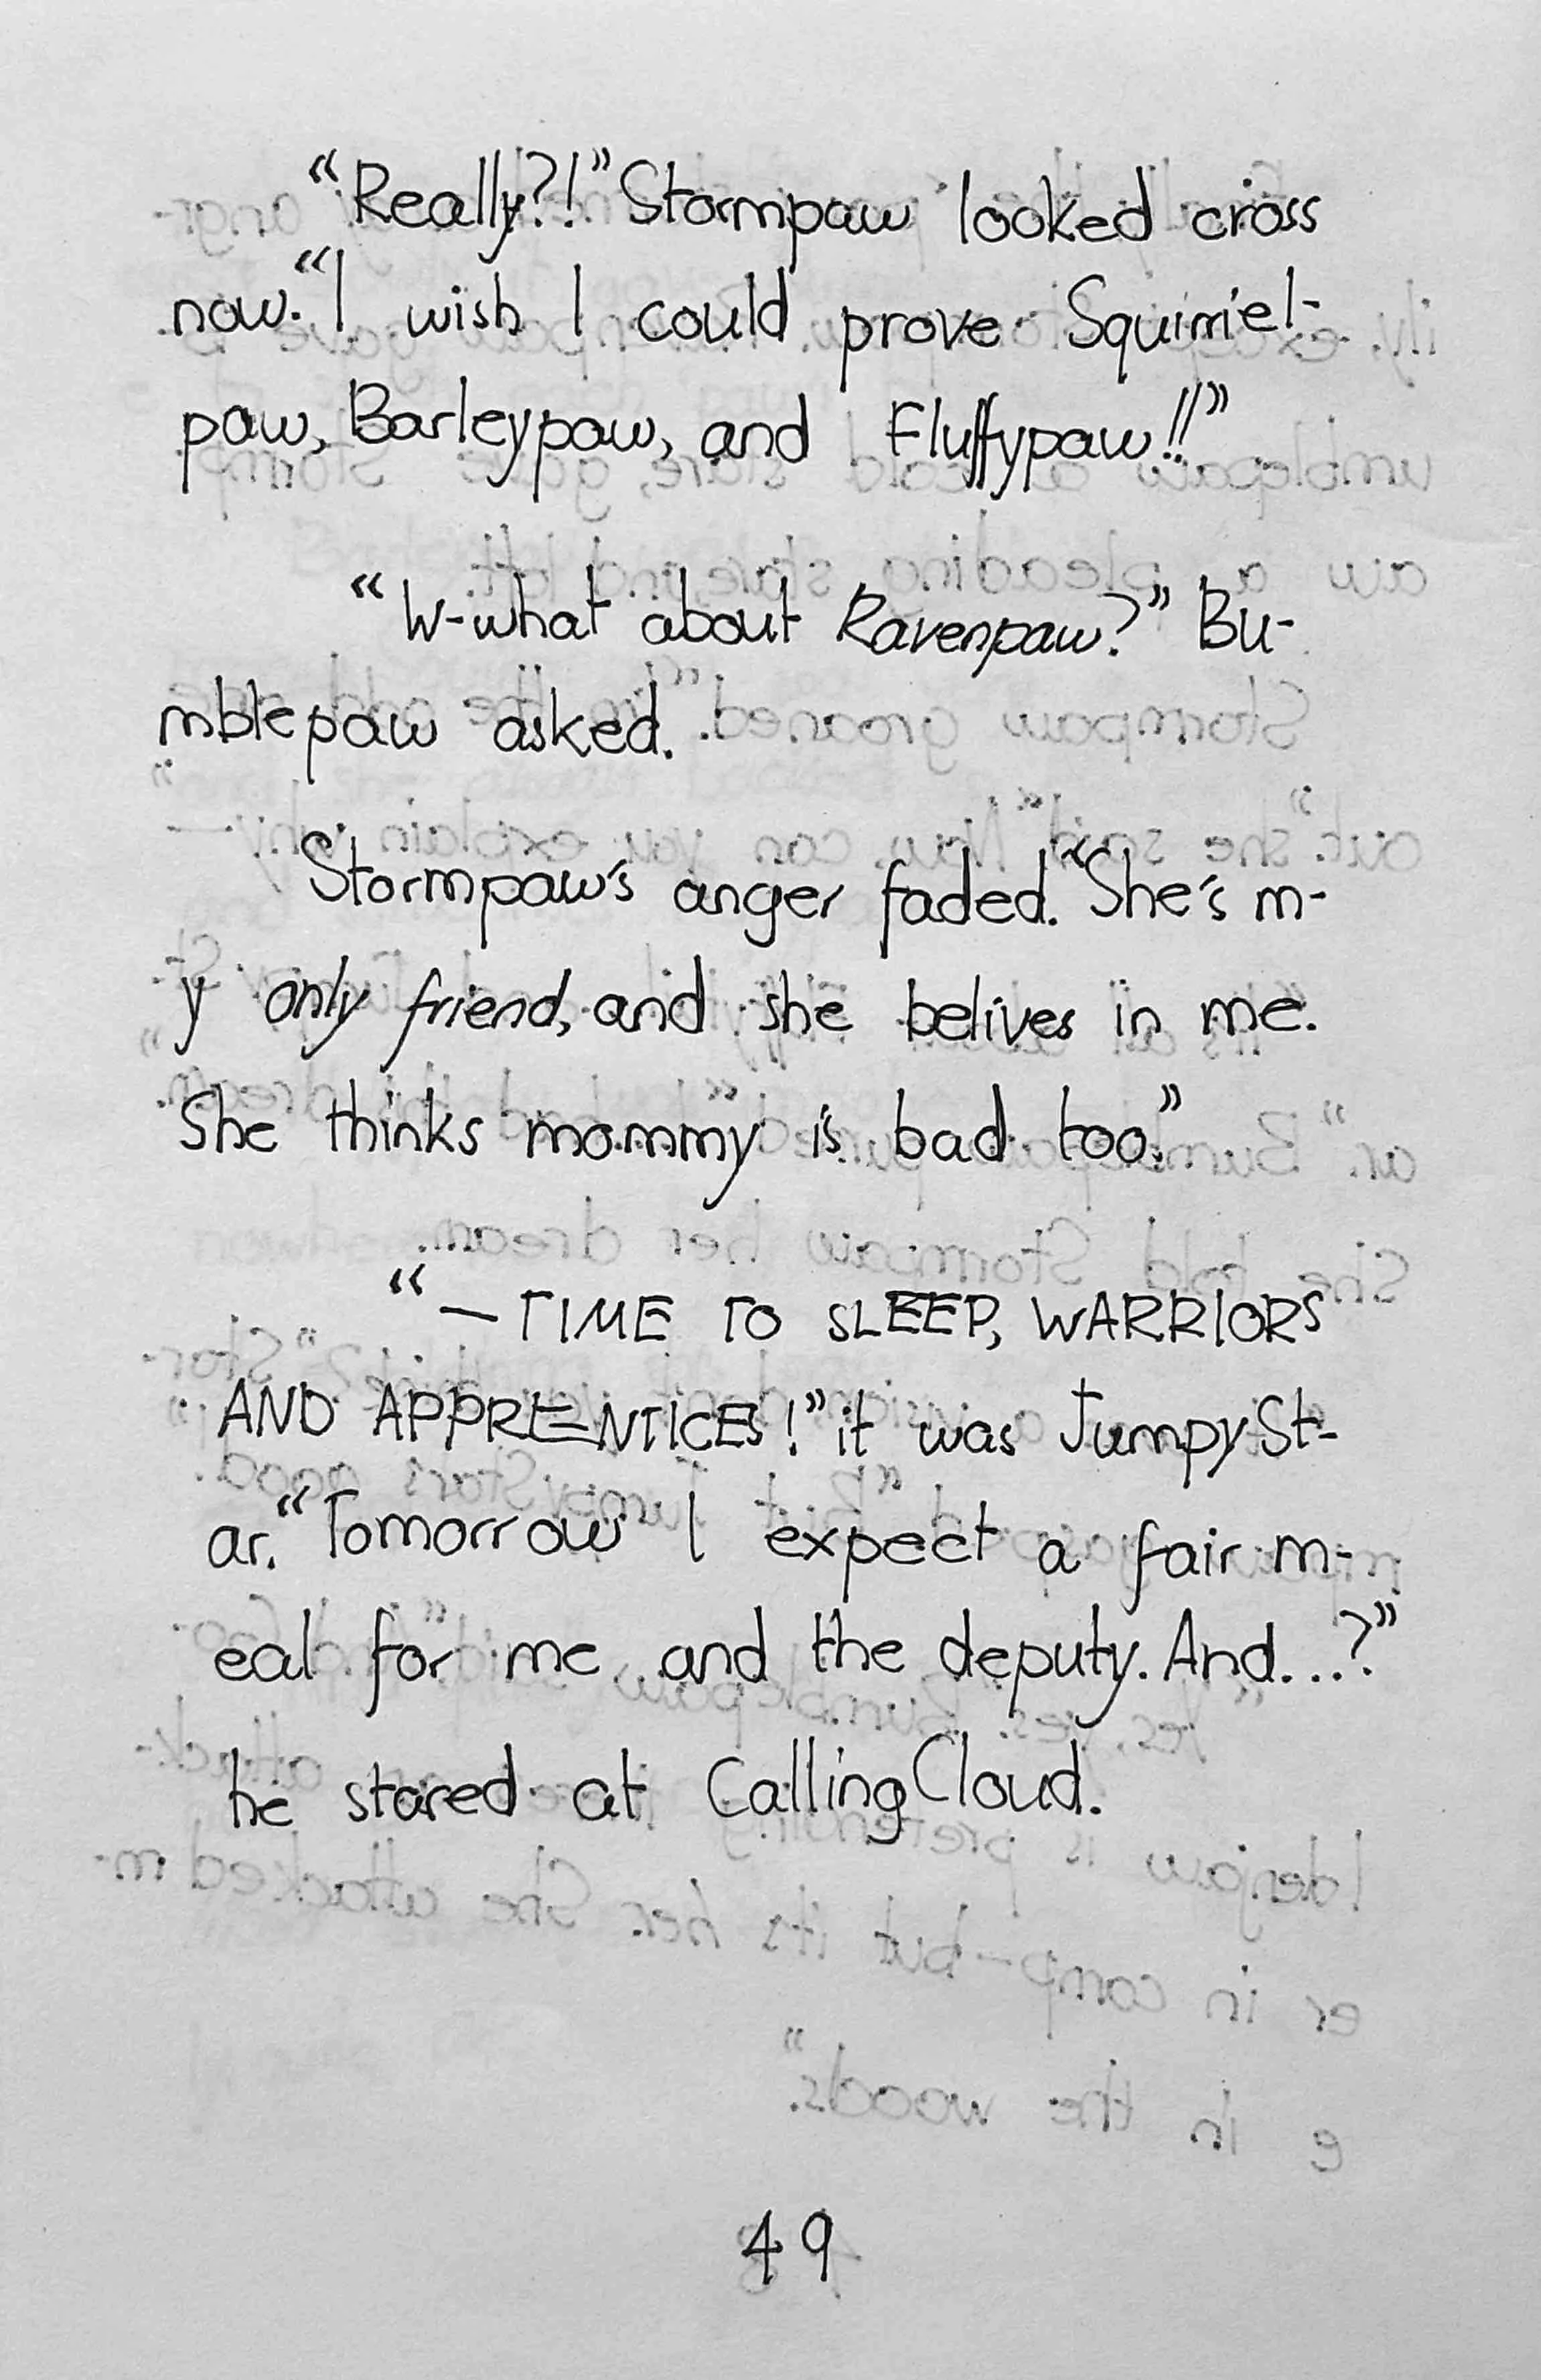 “Really?!” Stormpaw looked cross
now. “I wish I could prove Squirrel-
paw, Barleypaw, and Fluffypaw!!”
“W-what about Ravenpaw?” Bu-
mblepaw asked.
Stormpaw's anger faded. “She's m-
y only friend, and she belives in me.
She thinks mommy is bad too.”
“—TIME TO SLEEP, WARRIORS
AND APPRENTICES!” it was JumpySt-
ar. “Tomorrow I expect a fair m-
eal for me and the deputy. And...?”
he stared at CallingCloud.
49